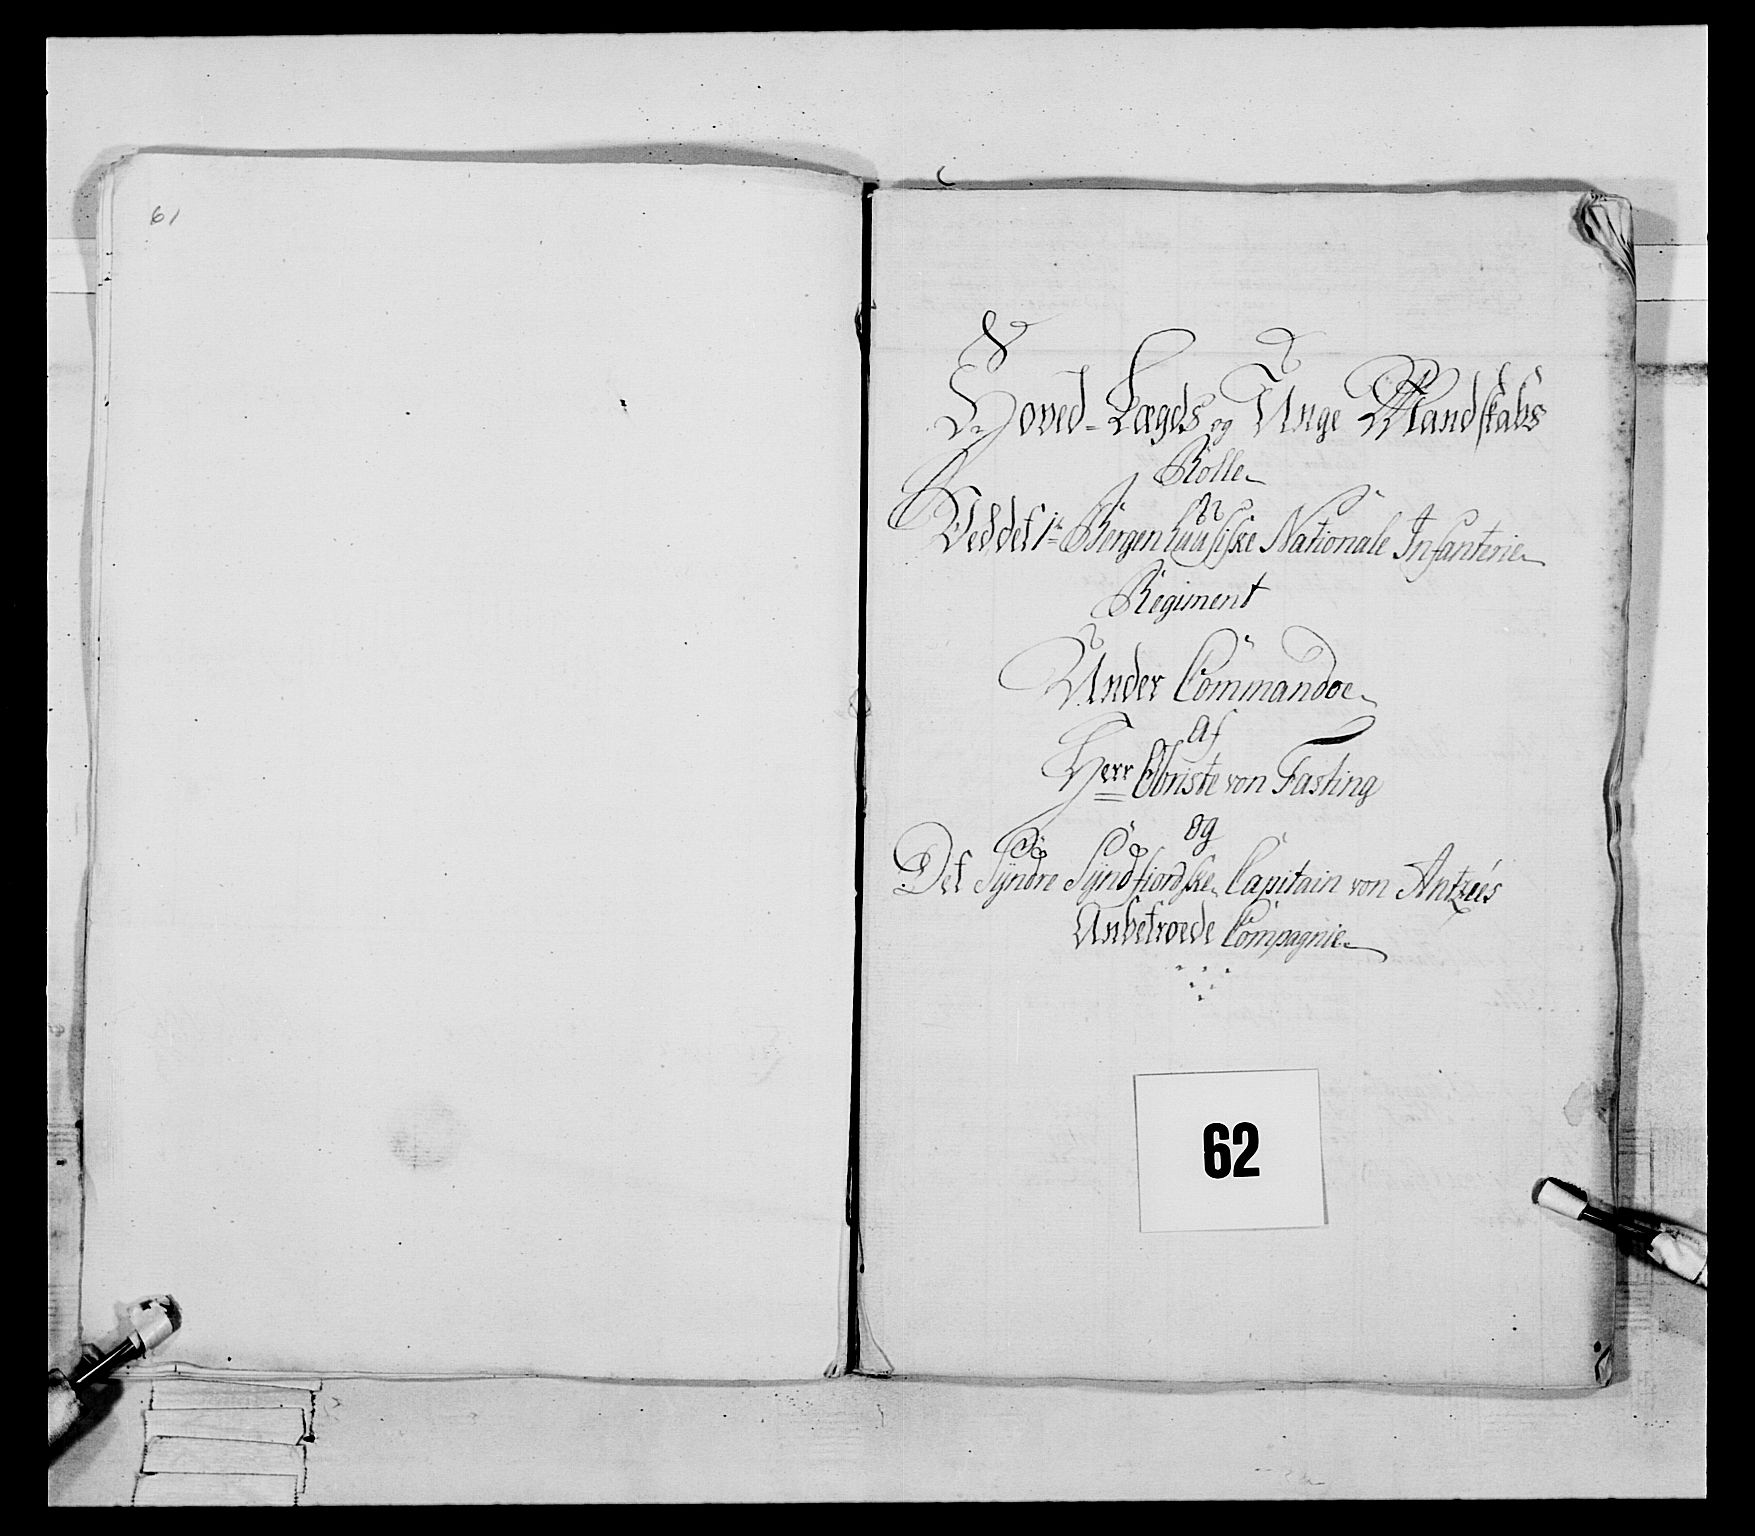 61
Hoved-Lægds og Unge Mandskabs
Rolle
Ved det 1te Bergenhuusiske Nationale Infanterie
Regiment
Under Commandoe
Af
Herr Obriste von Fasting
og
Det Syndre Syndfiordske Capitain von Antzeés
Anbetroede Compagnie
62